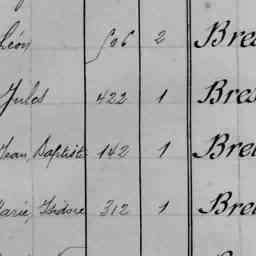 Léon 506 2 Bre
Jules 422 1 Bres
Jean Baptiste 142 1 Bre
Marie, Isidore 312 1 Bre